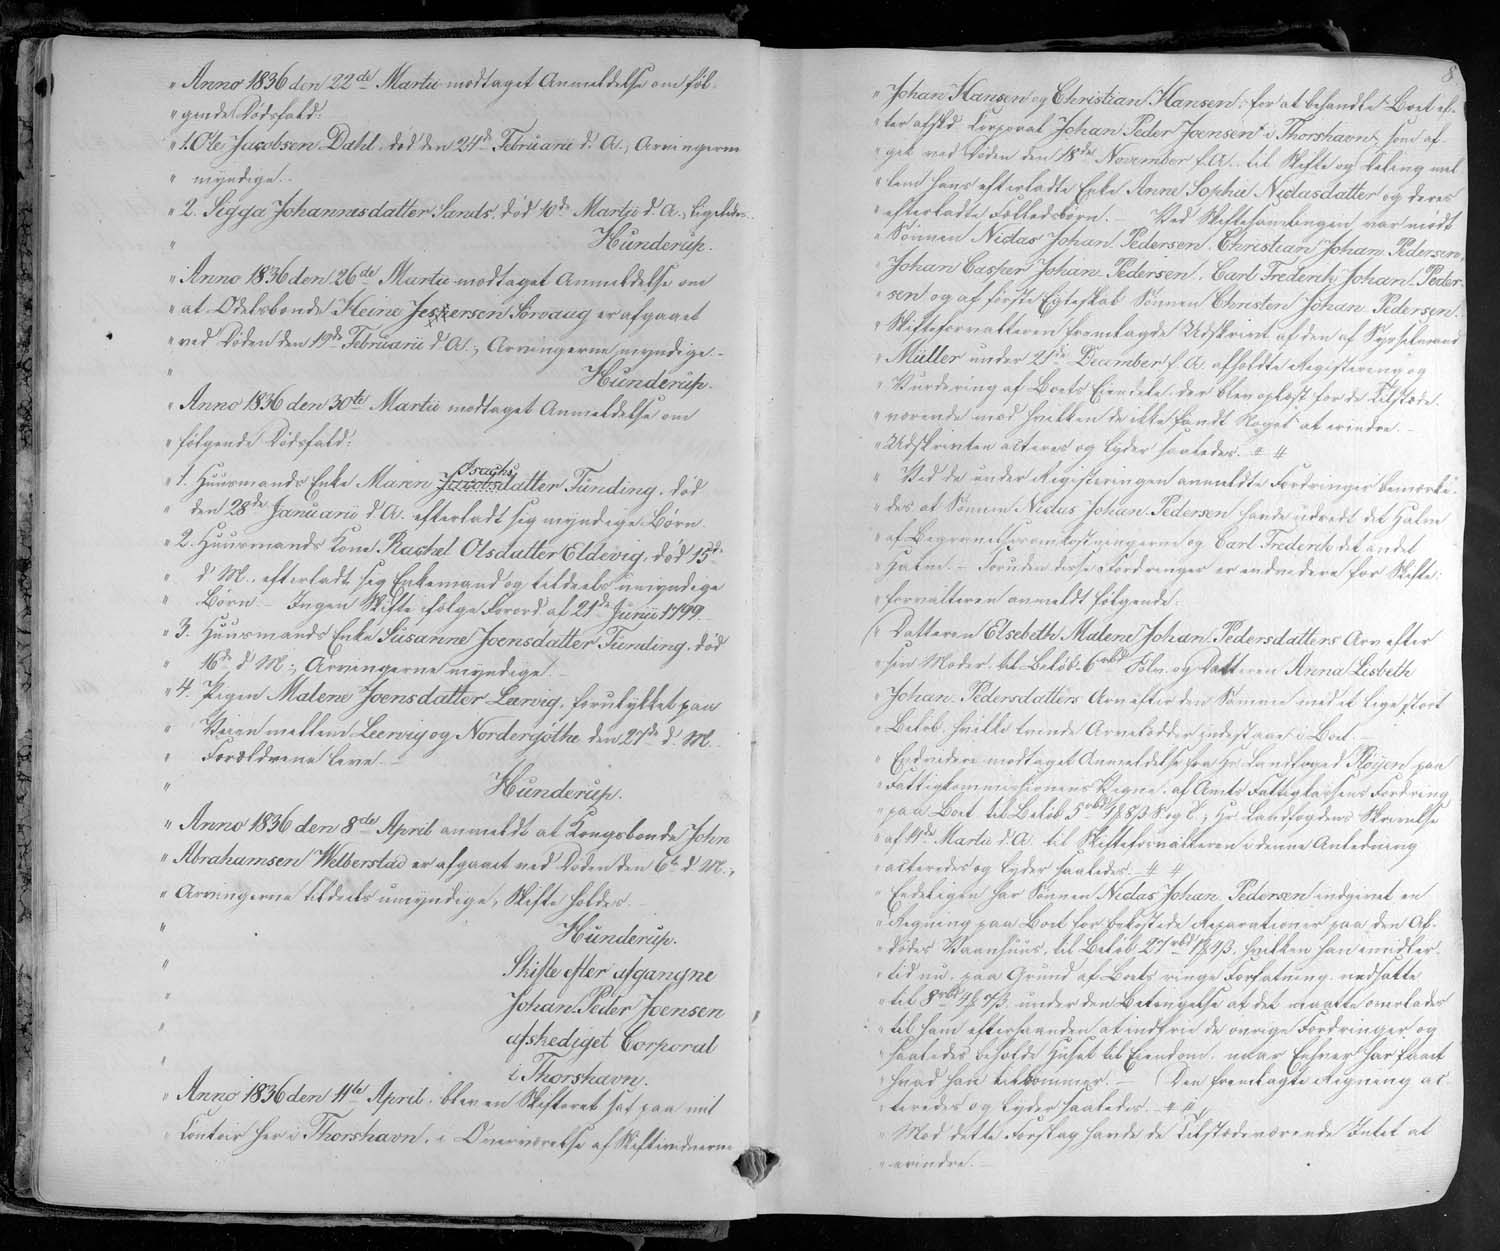 " Anno 1836 den 22de Martii modtaget Anmeldelse om føl-
" gende Dødsfald:
" 1. Ole Jacobsen Dahl, død den 24de Februarii d. A., Arvingerne
" myndige.
" 2. Sigga Johannesdatter Sands, død 10de Martii d. A., ligeledes.
" Hunderup.
" Anno 1836 den 26de Martii modtaget Anmeldelse om
" at Odelsbonde Heine Jespersen Sørvaag er afgaaet
" ved Døden den 19de Februarii d. A., Arvingerne myndige.
" Hunderup.
" Anno 1836 den 30te Martii modtaget Anmeldelse om
" følgende Dødsfald:
Isachs
" 1. Huusmands Enke Maren Jacobsdatter Funding, død
" den 28de Januarii d. A. efterladt sig myndige Børn.
" 2. Huusmands Kone Rachel Olsdatter Eldevig, død 15de
" d. M., efterladt sig Enkemand og tildeels umyndige
" Børn. – Ingen Skifte ifølge Forord. af 21de Junii 1799.
" 3. Huusmands Enke Susanne Joensdatter Funding, død
" 16de d. M., Arvingerne myndige. –
" 4. Pigen Malene Joensdatter Leervig, forulykket paa
" Veien mellem Leervig og Nordergøthe den 27de d. M.
" Forældrene leve. –
" Hunderup.
" Anno 1836 den 8de April anmeldt at Kongsbonde John
" Abrahamsen Welberstad er afgaaet ved Døden den 6te d. M.,
" Arvingerne tildeels umyndige, Skifte holdes. –
" Hunderup.
" Skifte efter afgangne
" Johan Peder Joensen
" afskediget Corporal
" i Thorshavn.
" Anno 1836 den 11te April, blev en Skifteret sat paa mit
" Contoir her i Thorshavn, i Overværelse af Skiftevidnerne
8
" Johan Hansen og Christian Hansen, for at behandle Boet ef-
" ter afskd. Corporal Johan Peder Joensen i Thorshavn, som af-
" gik ved Døden den 18de November f. A. til Skifte og Deling mel-
" lem hans efterladte Enke Anne Sophie Niclasdatter og deres
" efterladte Fællesbørn. – Ved Skiftesamlingen var mødt
" Sønnen Niclas Johan Pedersen, Christian Johan Pedersen,
" Johan Casper Johan Pedersen, Carl Frederik Johan Peder-
" sen og af første Egteskab Sønnen Christen Johan Pedersen.
" Skifteforvalteren fremlagde Udskrivt af den af Sysselmand
" Müller under 21de December f. A. afholdte Registering og
" Vurdering af Boets Eiendele, der blev oplæst for de Tilstæde-
" værende mod hvilken de ikke fandt Noget at erindre. –
" Udskrivten acteres og lyder saaledes. – # #
" Ved de under Registeringen anmeldte Fordringer bemærke-
" des at Sønnen Niclas Johan Pedersen havde udredt det Halve
" af Begravelsesomkostningerne og Carl Frederik det andet
" Halve. – Foruden disse Fordringer er endvidere for Skifte-
" forvalteren anmeldt følgende:
" Datteren Elsebeth Malene Johan Pedersdatters Arv efter
" sin Moder til Beløb 6 rbd Sølv og Datteren Anna Lisbeth
" Johan Pedersdatters Arv efter den Samme med et lige stort
" Beløb, hvilke tvende Arvelodder indestaae i Boet. –
" Endvidere modtaget Anmeldelse fra Hr. Landfoged Pløyen paa
" Fattigkommissionens Vegne, af Amts Fattigkassens Fordring
" paa Boet til Beløb 5 rbd S. og T.; Hr. Landfogdens Skrivelse
" af Martii d. A. til Skifteforvalteren i denne Anledning
" acteredes og lyder saaledes. – # #
" Endeligen har Sønnen Niclas Johan Pedersen indgivet en
" Regning paa Boet for bekostede Reparationer paa den Af-
" dødes Vaanhuus, til Beløb 27 rbd, hvilken han imidler-
" tid nu, paa Grund af Boets ringe Forfatning, nedsatte
" til 8 rbd under den Betingelse at det maatte overlades
" til ham efterhaanden at indfrie de øvrige Fordringer og
" saaledes beholde Huset til Eiendom, naar Enhver har faaet
" hvad ham tilkommer. – Den fremlagte Regning ac-
" teredes og lyder saaledes. – # #
" Mod dette Forslag havde de Tilstædeværende Intet at
" erindre. –